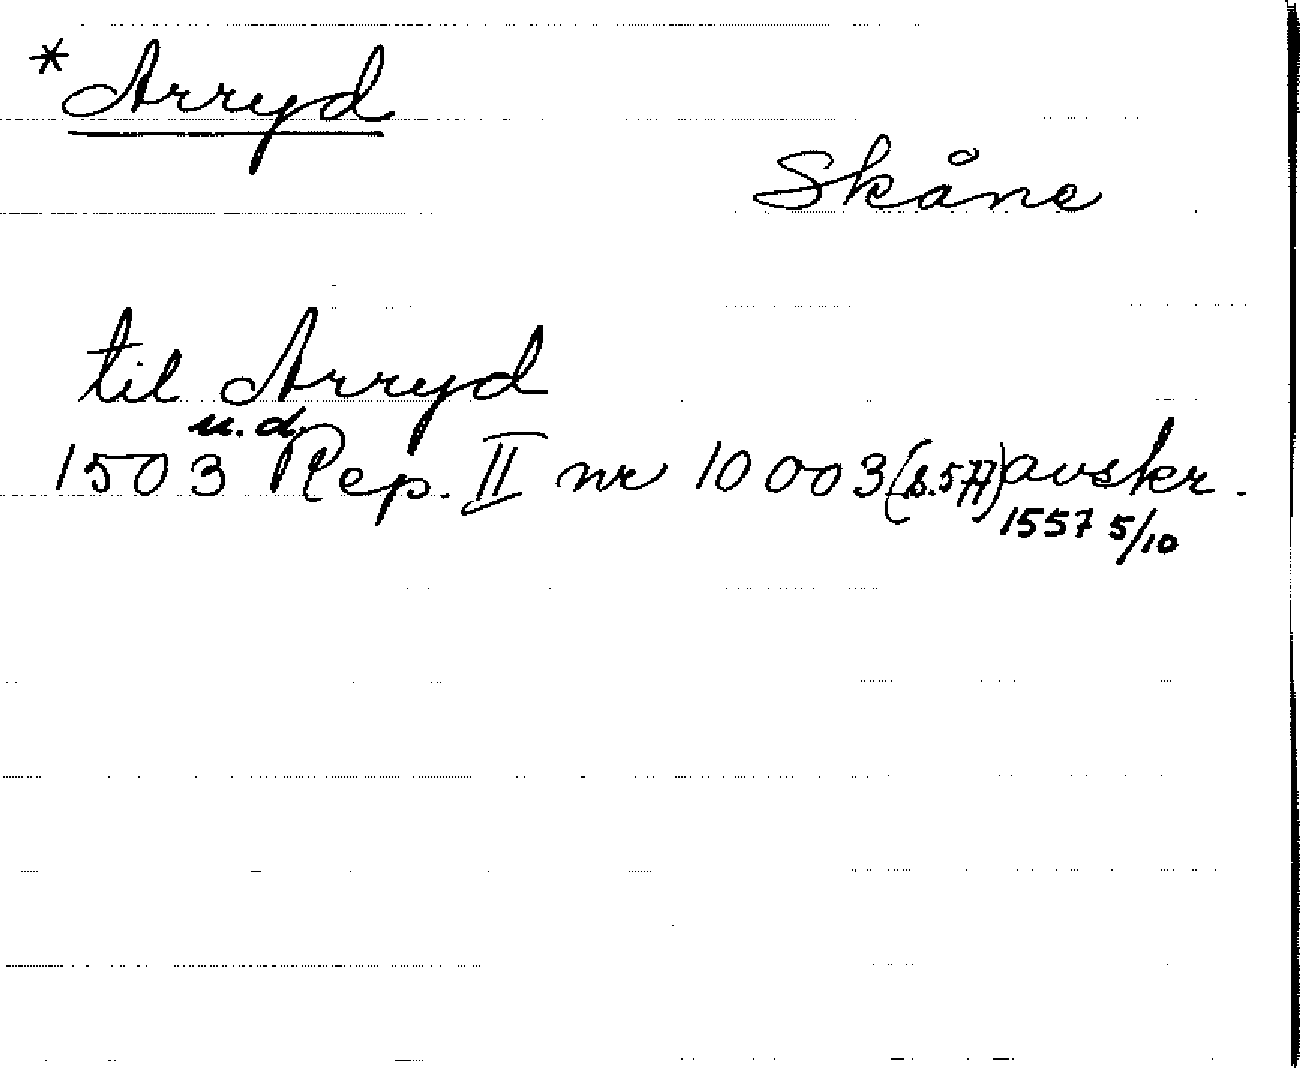 *Arryd
Skåne
til Arryd
u.d.
1503 Rep. II nr 10003 (s.577) avskr.
1557 5/10